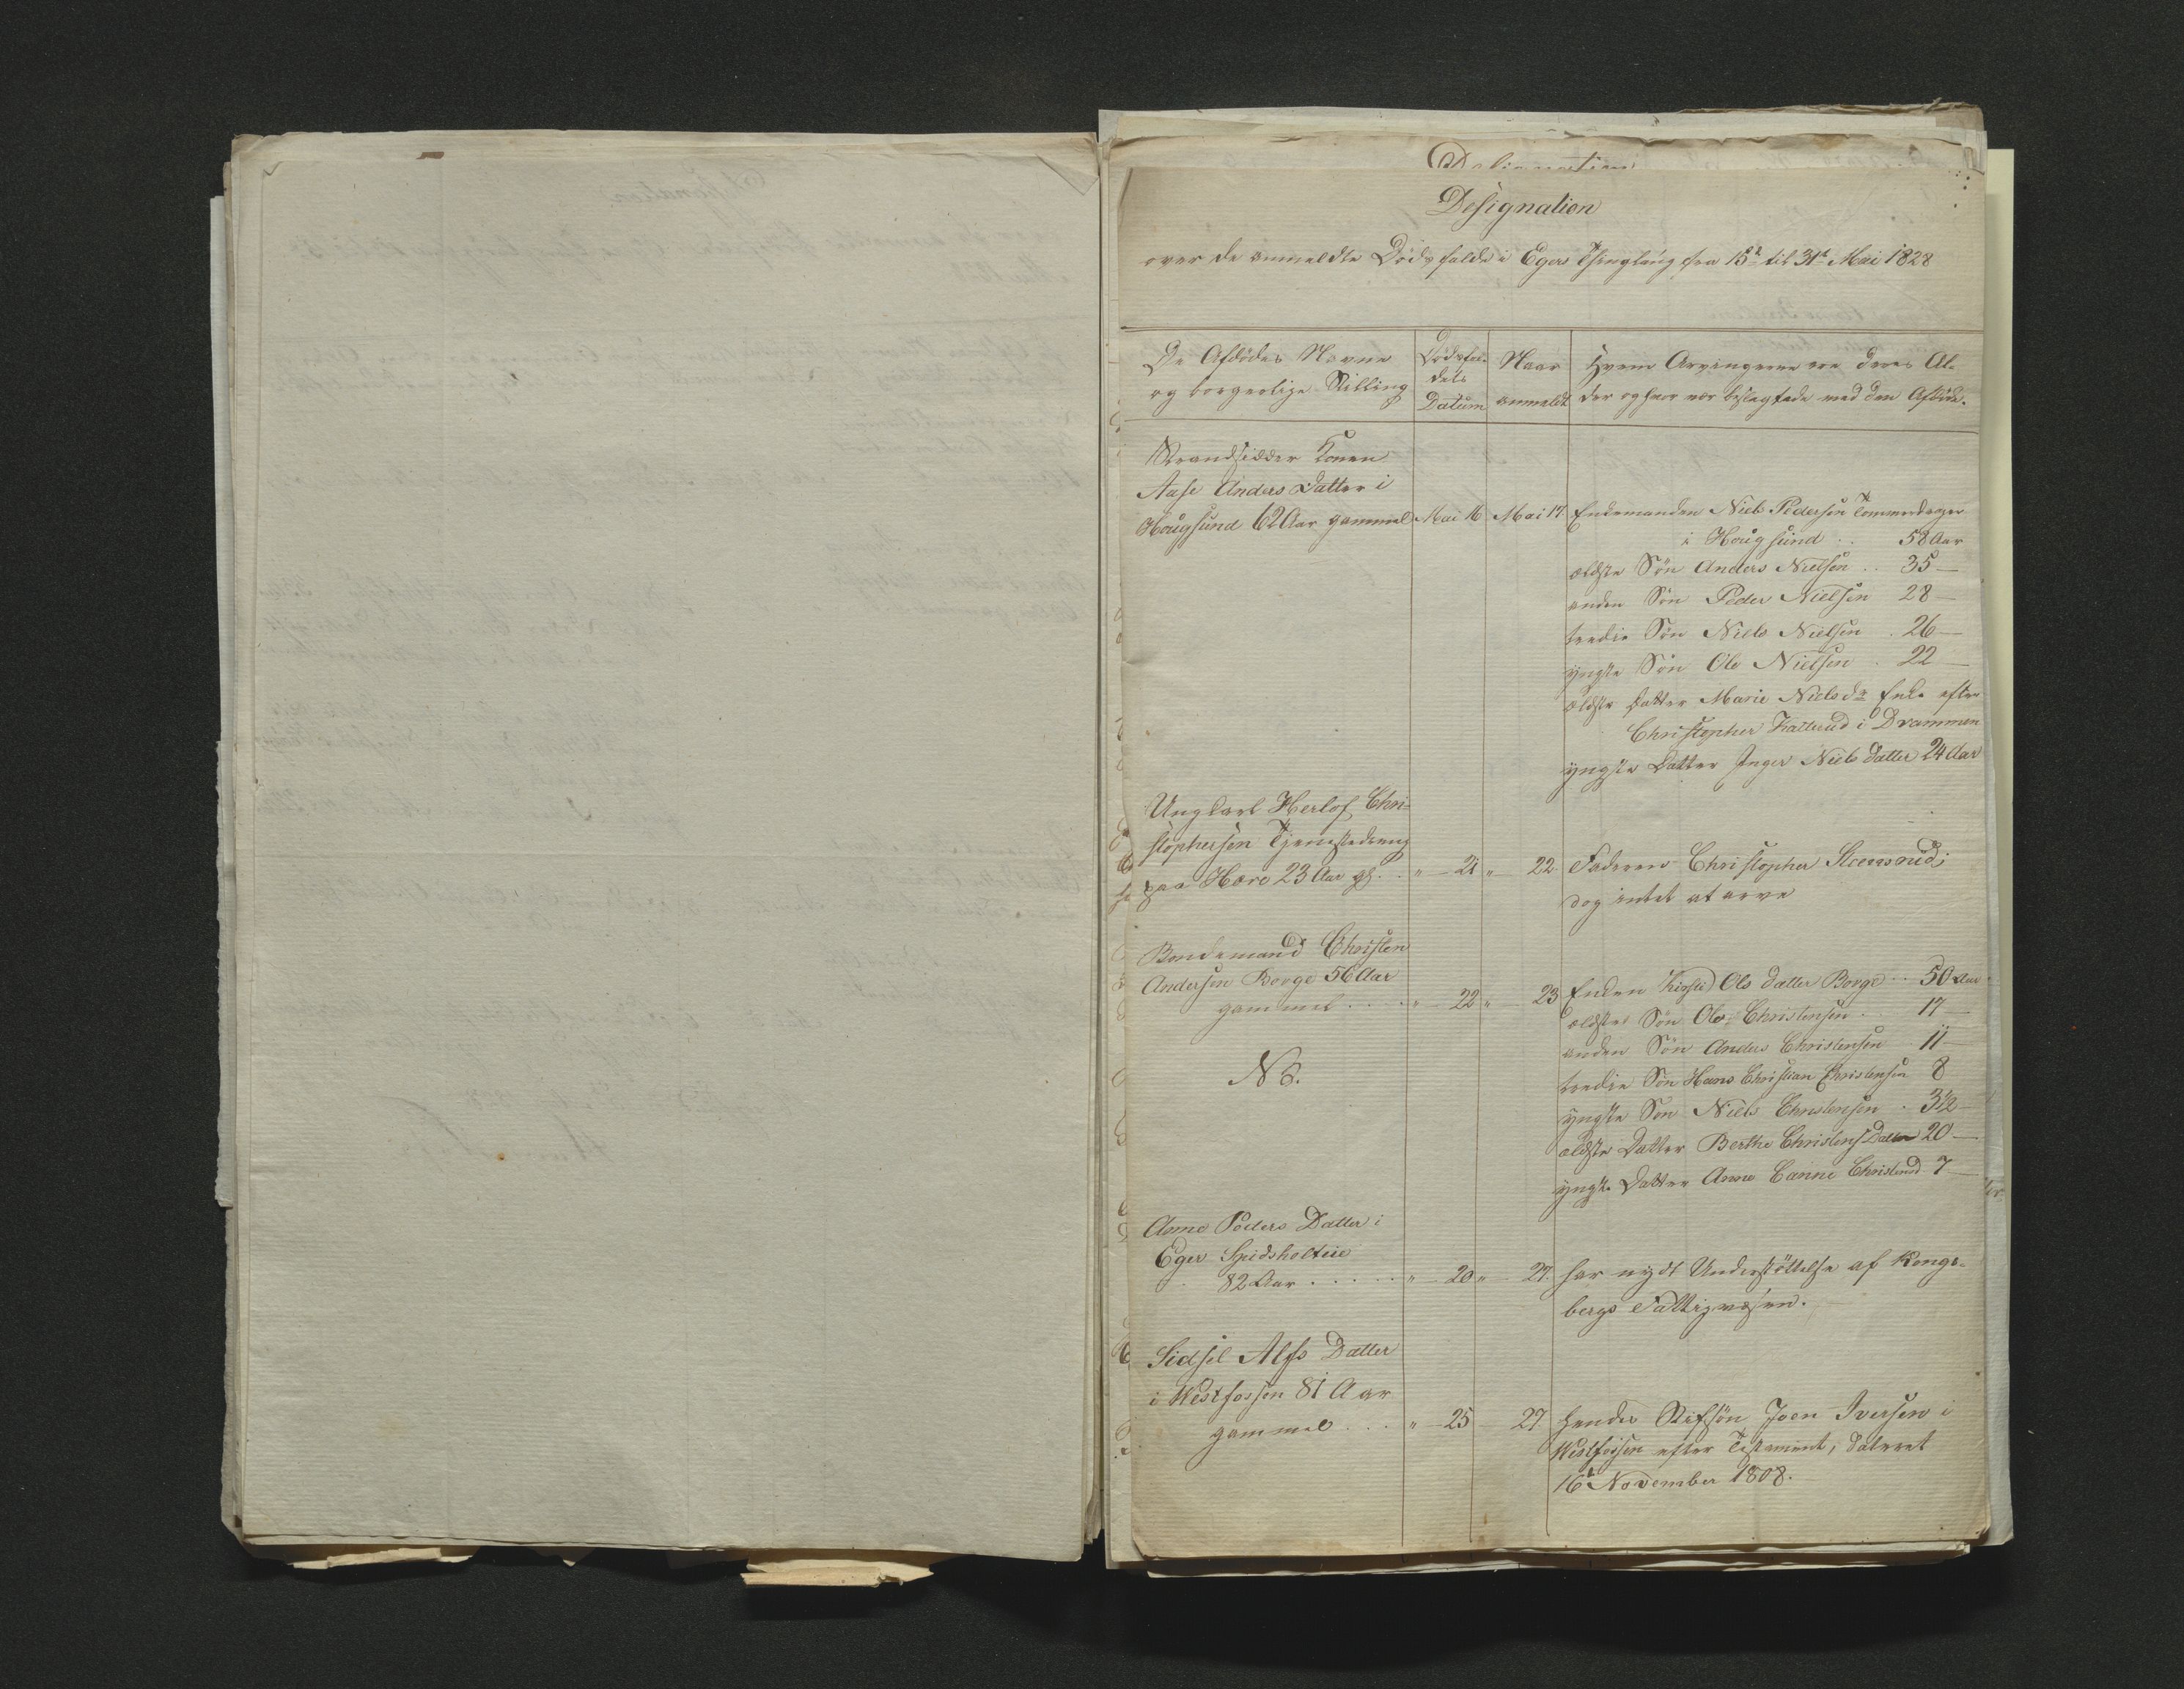 Designation
over de anmeldte Dødsfalde i Egers Thinglaug fra 15de til 31te Mai 1828
De Afdødes Navne
og borgerlige Stilling
Dødsfal-
dets
Datum
Naar
anmeldt
Hvem Arvingerne ere deres Al-
der og hvor nær beslægtede med den Afdøde.
Strandsidder Konen
Aase Anders Datter i
Hougsund 62 Aar gammel
Mai 16
Mai 17.
Enkemanden Niels Pedersen Tømmerdrager
i Hougsund .. 58 Aar
ældste Søn Anders Nielsen .. 35 —
anden Søn Peder Nielsen 28 —
tredie Søn Niels Nielsen . 26 —
yngste Søn Ole Nielsen . 22 —
ældste Datter Marie Nielsdr Enke efter
Christopher i Drammen
yngste Datter Inger Niels datter 24 Aar
Ungkarl Herlof Chri-
stophersen Tjenestedreng
paa Hære 23 Aar gl. . . " — 21 " — 22.
Faderen Christopher
dog intet at arve
Bondemand Christen
Andersen Borge 56 Aar
gammel . . . . " — 22 " — 23
Enken Kirsti Ols datter Borge .. 50 Aar
ældste Søn Ole Christensen . 17 —
anden Søn Anders Christensen 11 —
tredie Søn Hans Christian Christensen 8
yngste Søn Niels Christensen . 3 1/2 —
ældste Datter Berthe Christens Datter 20 —
yngste Datter Anne Christensd 7 —
NB.
Anne Peders Datter i
Eger Spidsholteie
82 Aar . . . . . " — 20 " — 27.
har nydt Understøttelse af Kongs-
bergs Fattigvæsen.
Sidsel Alfs Datter
i Westfossen 81 Aar
gammel . . . " — 25 — 27
hendes Stifsøn Joen Iversen i
Westfossen efter Testament, dateret
16de November 1808.